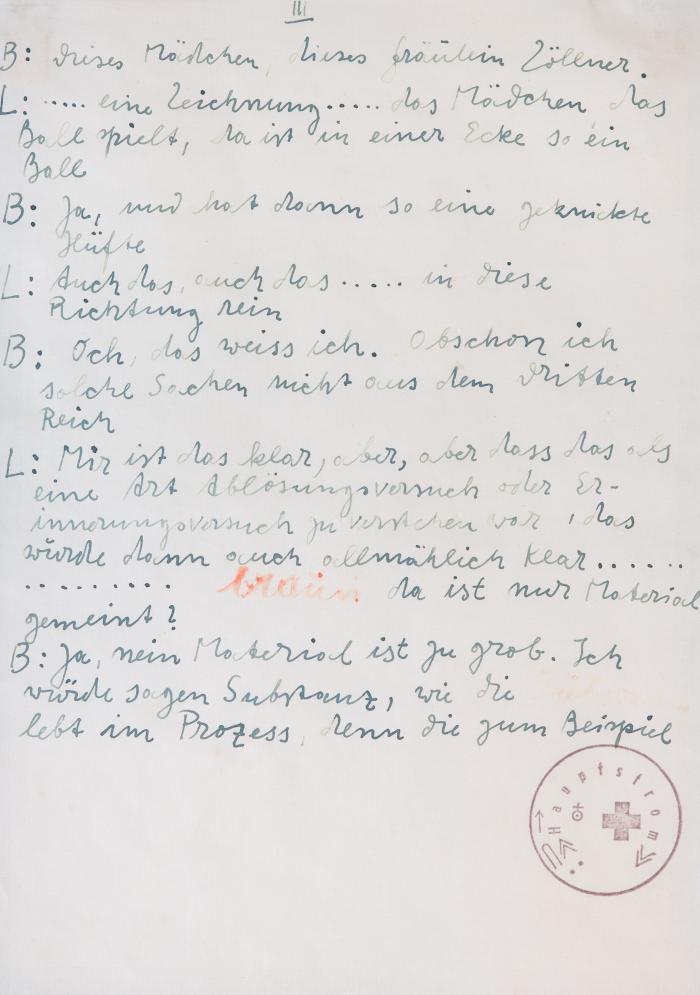 III
B: dieses Mädchen, dieses fräulein Zöllner.
L: ..... eine Zeichnung..... das Mädchen das
Ball spielt, da ist in einer Ecke so ein
Ball
B: Ja, und hat dann so eine geknickte
Hüfte
L: Auch das, auch das ..... in diese
Richtung rein
B: Och, das weiss ich. Obschon ich
solche Sachen nicht aus dem dritten
Reich
L: Mir ist das klar, aber, aber dass das als
eine Art Ablösungsversuch oder Er-
innerungsversuch zu verstehen war, das
würde dann auch allmählich klar......
.......... braun da ist nur Material
gemeint?
B: Ja, nein Material ist zu grob. Ich
würde sagen Substanz, wie die
lebt im Prozess, denn die zum Beispiel
Hauptstrom